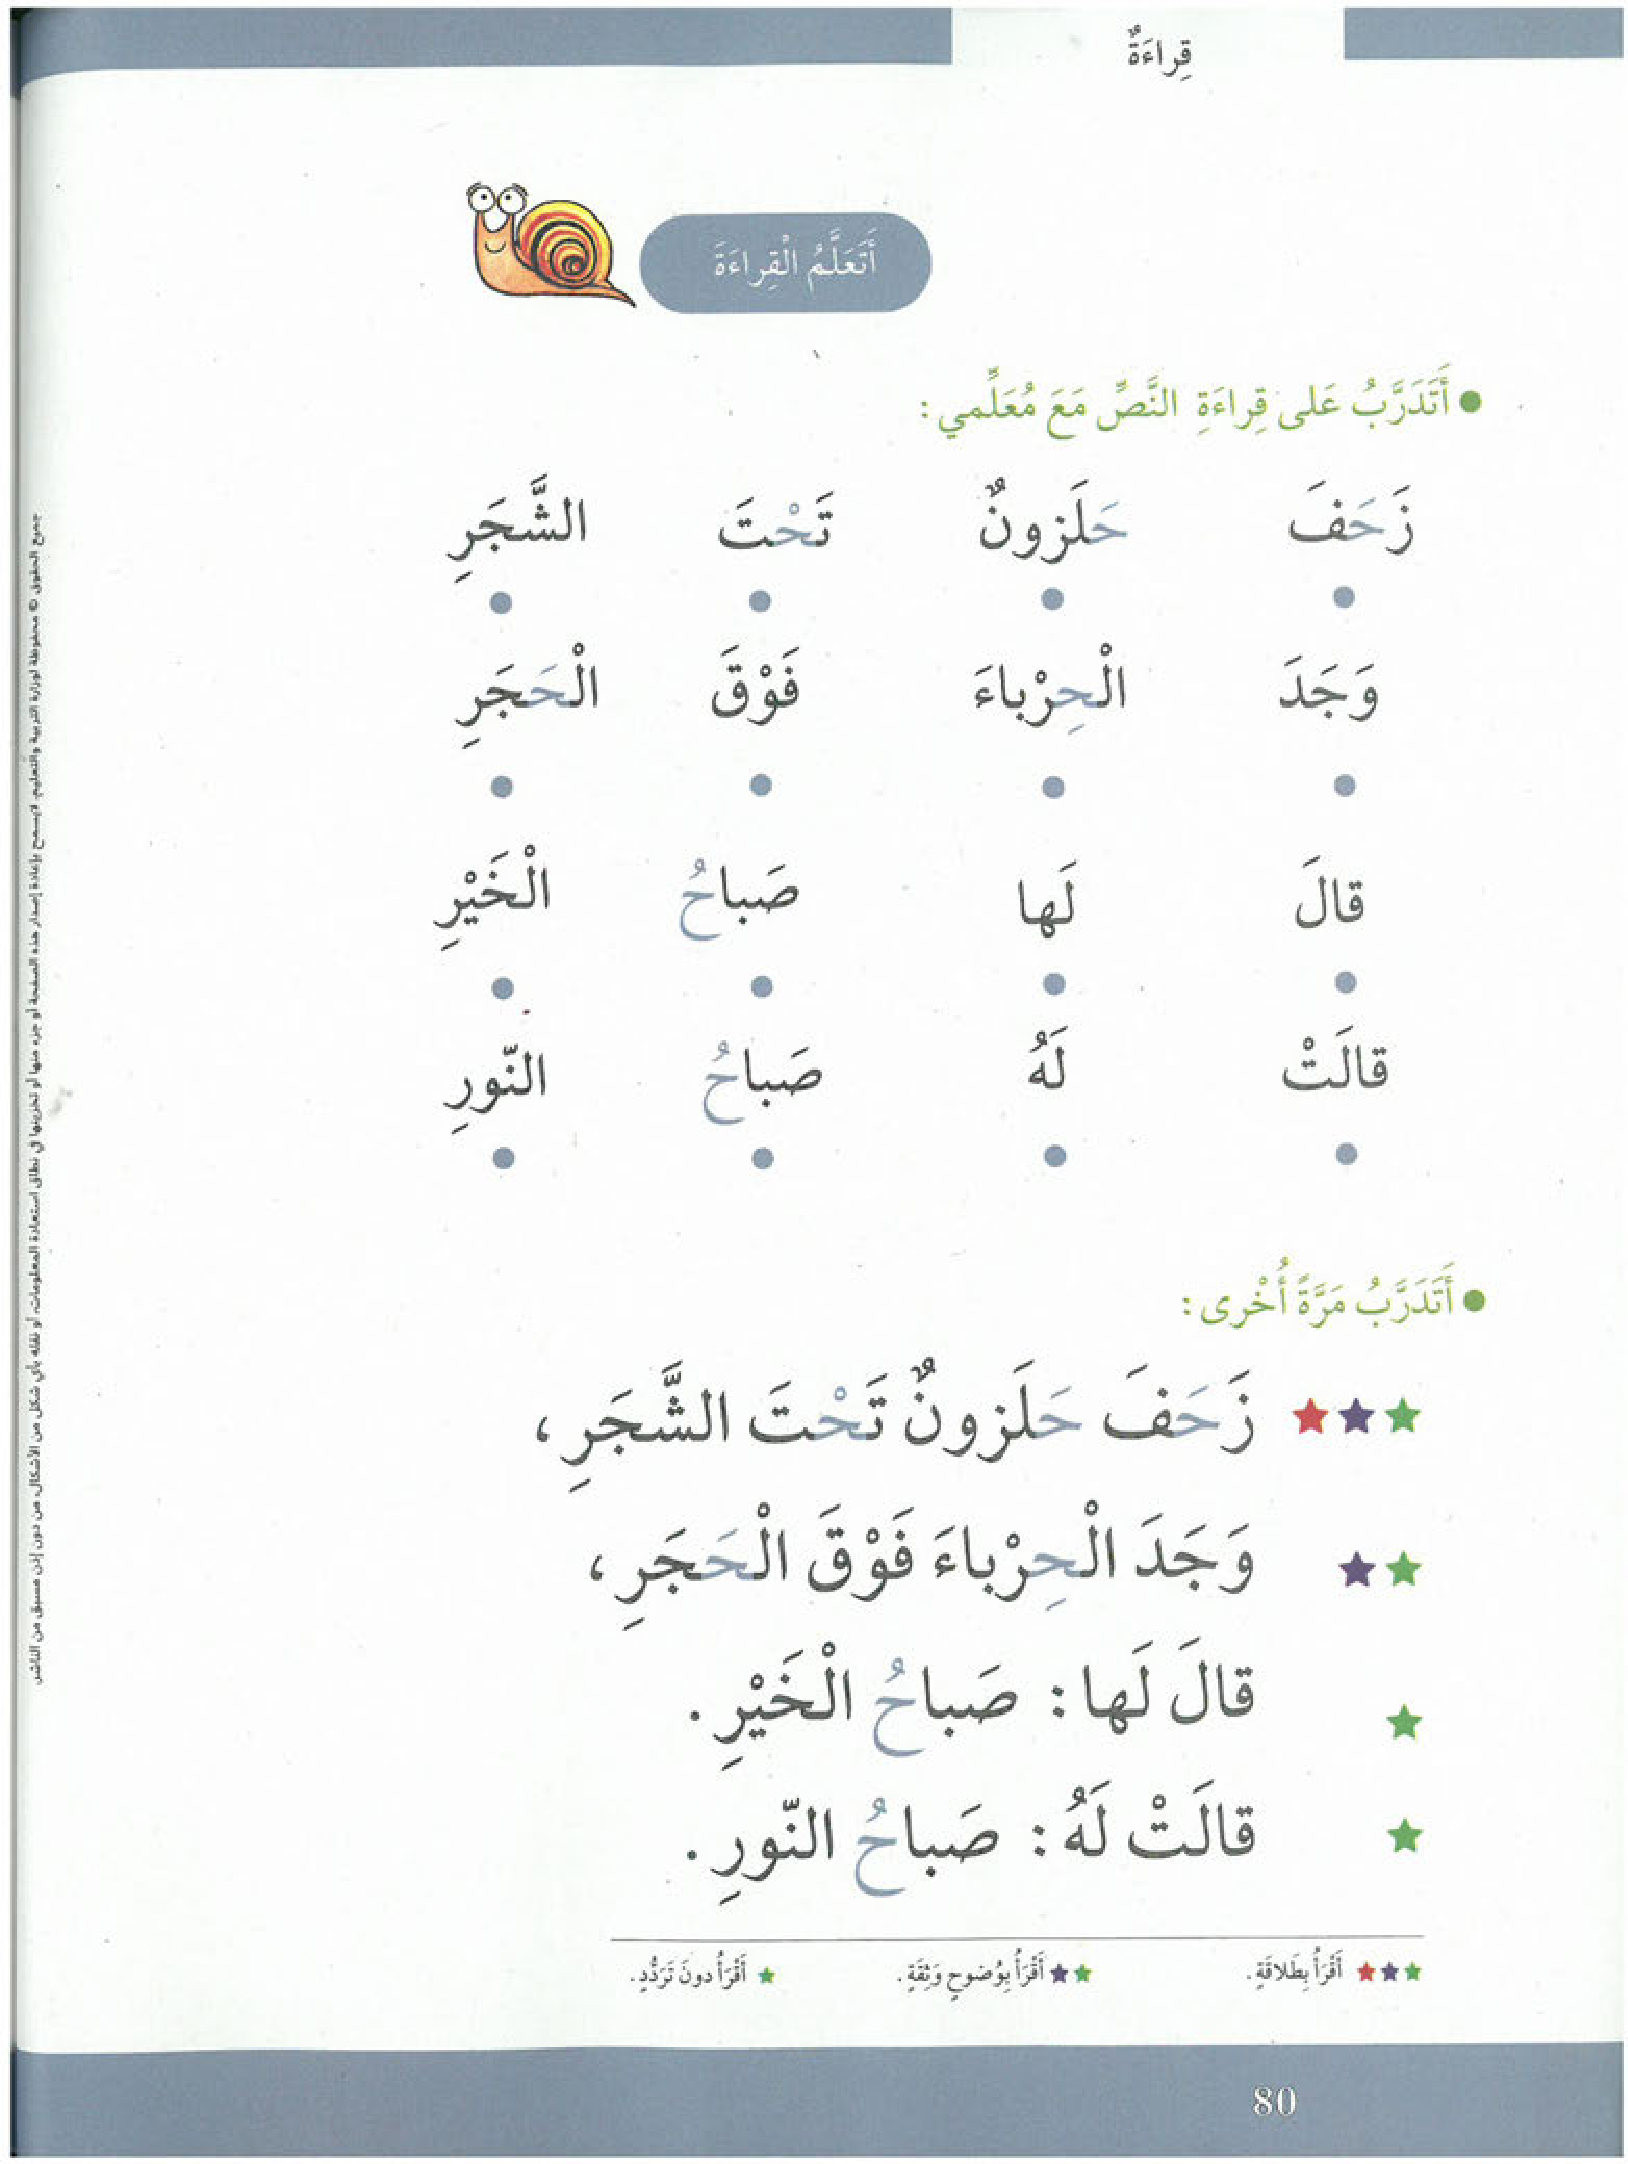 قِراءَةٌ
أَتَعَلَّمُ الْقِراءَةَ
أَتَدَرَّبُ عَلى قِراءَةِ النَّصِّ مَعَ مُعَلِّمي :
زَحَفَ حَلَزونٌ تَحْتَ الشَّجَرِ
وَجَدَ الْحِرْباءَ فَوْقَ الْحَجَرِ
قالَ لَها صَباحُ الْخَيْرِ
قالَتْ لَهُ صَباحُ النّورِ
أَتَدَرَّبُ مَرَّةً أُخْرى :
زَحَفَ حَلَزونٌ تَحْتَ الشَّجَرِ ،
وَجَدَ الْحِرْباءَ فَوْقَ الْحَجَرِ ،
قالَ لَها : صَباحُ الْخَيْرِ .
قالَتْ لَهُ : صَباحُ النّورِ .
أَقْرَأُ بِطَلاقَةٍ . أَقْرَأُ بِوُضوحٍ وَثِقَةٍ . أَقْرَأُ دونَ تَرَدُّدٍ .
80
جميع الحقوق © محفوظة لوزارة التربية والتعليم. لا يسمح بإعادة إصدار هذه الصفحة أو جزء منها أو تخزينها في نطاق استعادة المعلومات، أو نقله بأي شكل من الأشكال، من دون إذن مسبق من الناشر.